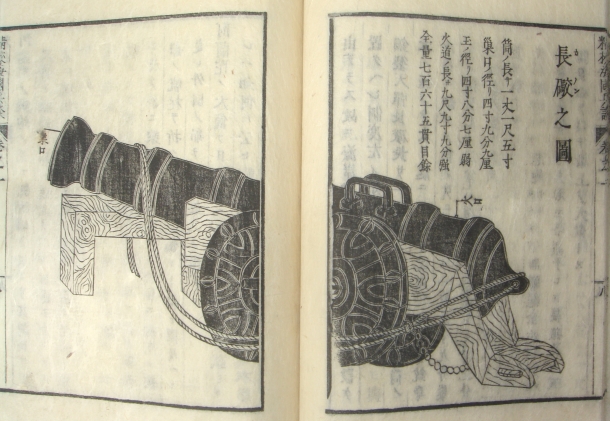 長礮之圖
カノン
筒ノ長サ一丈一尺五寸
巢口ノ徑リ四寸九分九厘
玉ノ徑リ四寸八分七厘弱
火道ノ長サ九尺九寸九分強
全量七百六十五貫目餘
火口
巢口